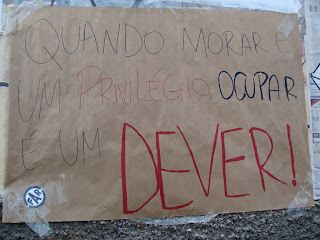 QUANDO MORAR É
UM PRIVILÉGIO, OCUPAR
É UM DEVER!